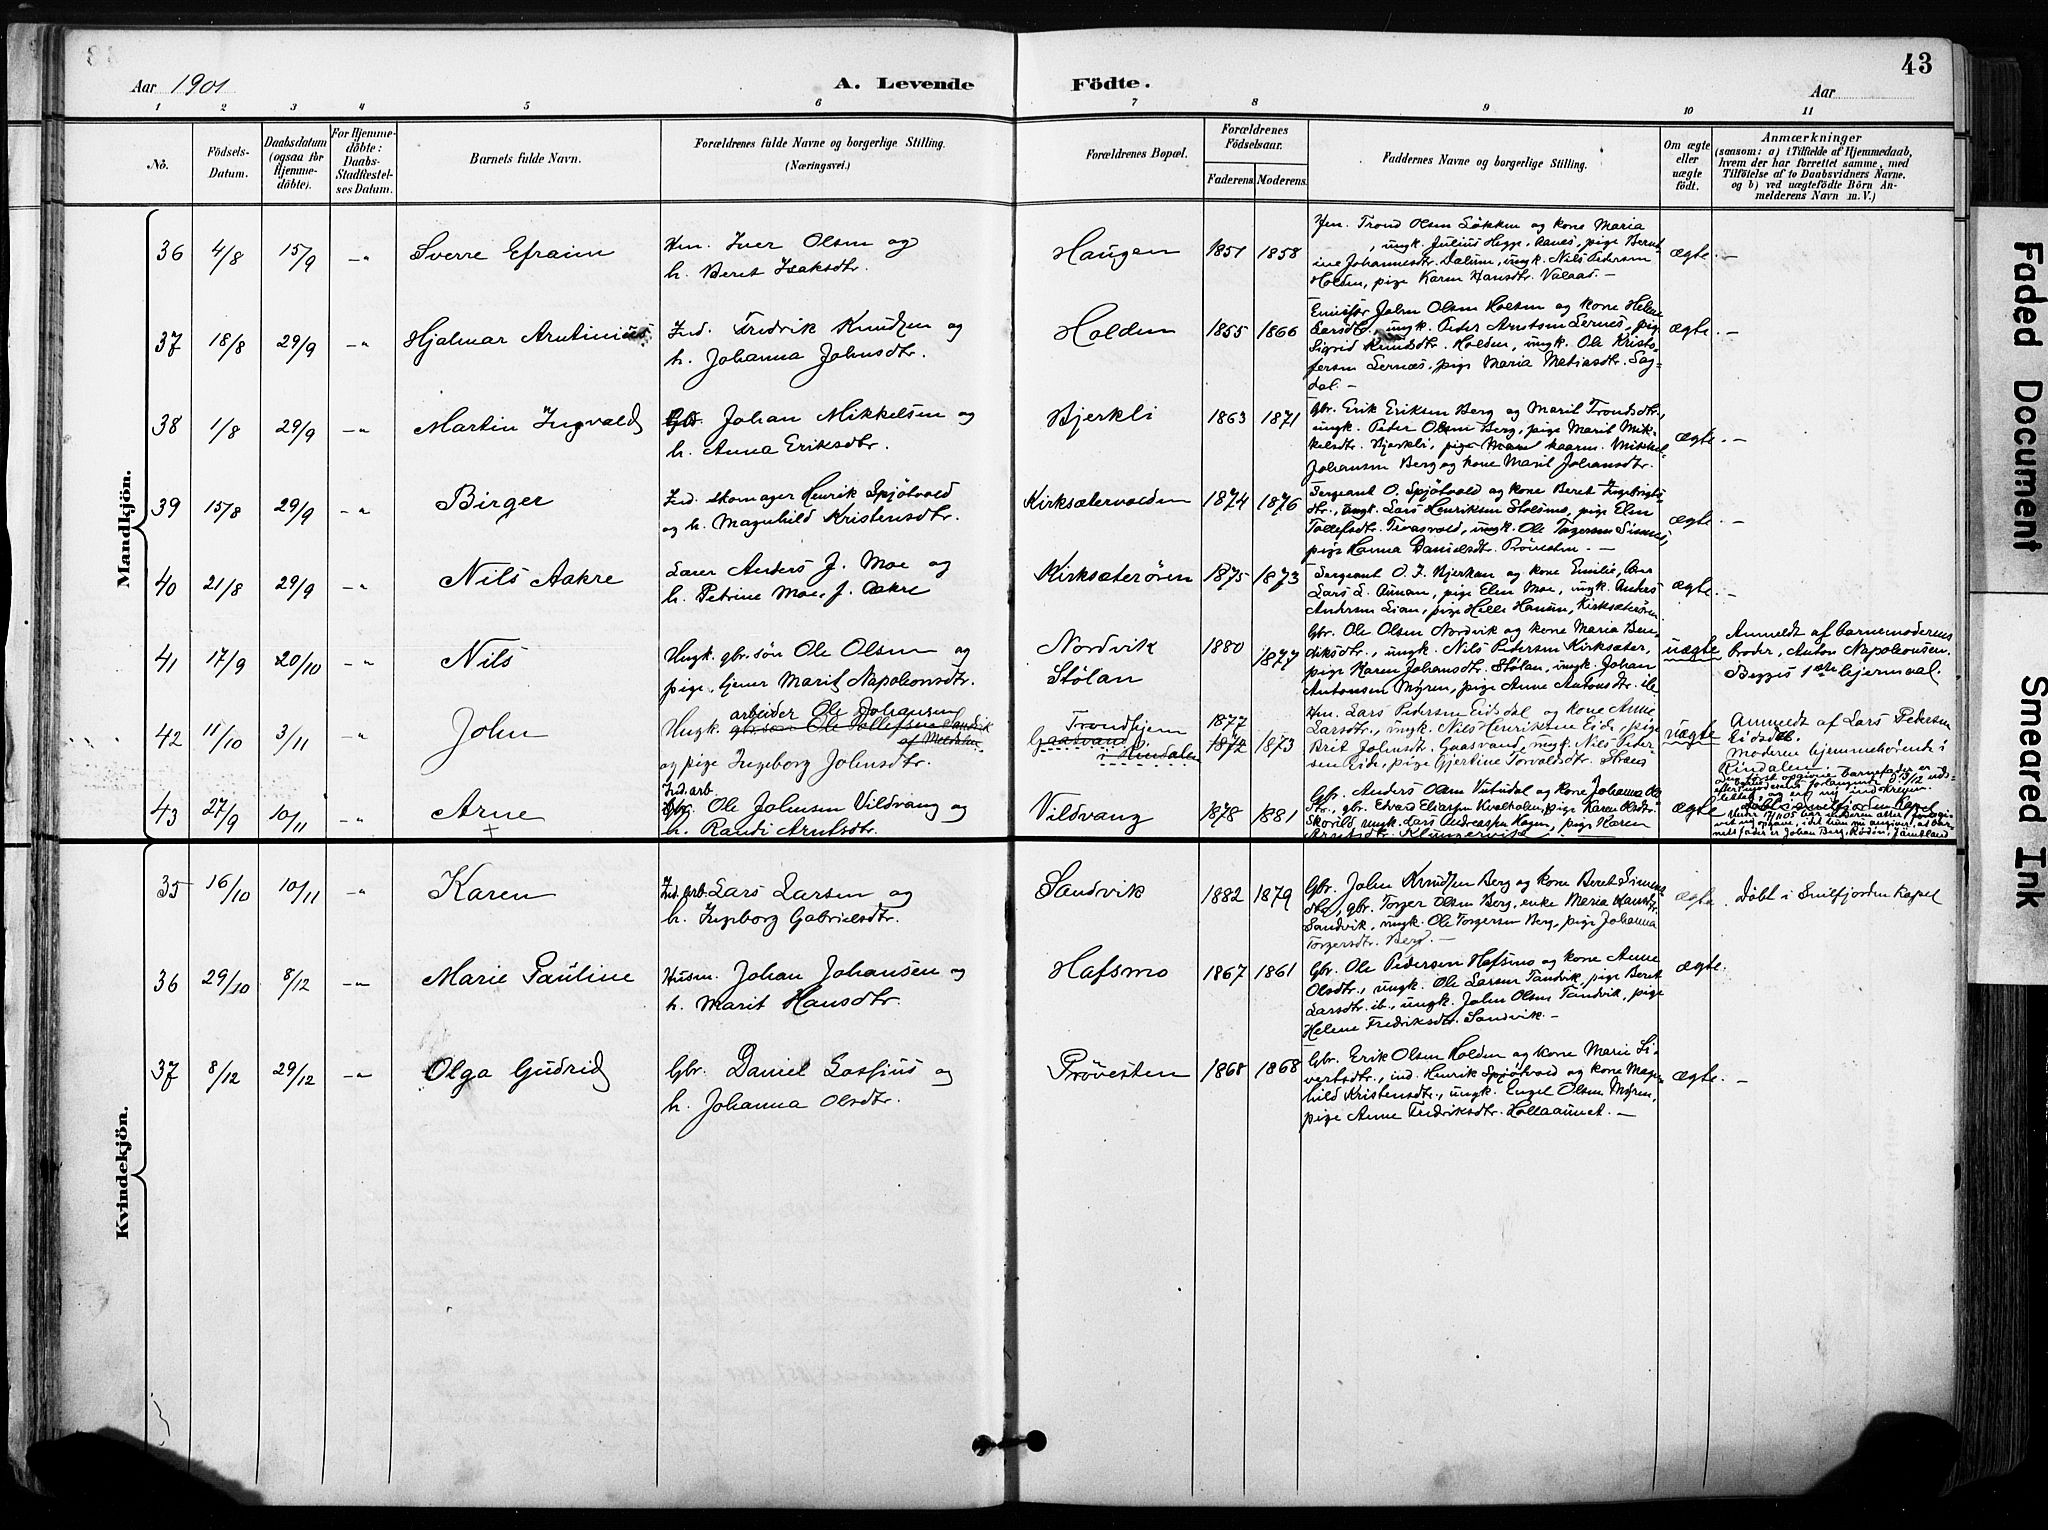 43
Aar 1901
A. Levende Födte.
Aar
1 2 3 4 5 6 7 8 9 10 11
No.
Födsels-
Datum.
Daabsdatum
(ogsaa for
Hjemme-
döbte).
For Hjemme-
döbte:
Daabs-
Stadfæstel-
ses Datum.
Barnets fulde Navn.
Forældrenes fulde Navne og borgerlige Stilling.
(Næringsvei.)
Forældrenes Bopæl.
Forældrenes
Födselsaar.
Faderens. Moderens.
Faddernes Navne og borgerlige Stilling.
Om ægte
eller
uægte
födt.
Anmærkninger
(saasom: a) i Tilfælde af Hjemmedaab,
hvem der har forrettet samme, med
Tilföielse af to Daabsvidners Navne,
og b) ved uægtefödte Börn An-
melderens Navn m. V.)
Mandkjön.
36 4/8 15/9 -"- Sverre Efraim
Hm. Iver Olsen og
h. Beret Isaksdtr.
Haugen 1851 1858
Hm. Trond Olsen Løkken og kone Maria
, ungk. Julius Hegge, Aanes, pige Bernt-
ine Johannesdtr. Dalum, ungk. Nils Pedersen
Holden, pige Karen Hansdtr. Valaas —
ægte. —
37 18/8 29/9 -"- Hjalmar Arntinius
Ind. Fredrik Knudsen og
h. Johanna Johnsdtr.
Holden 1855 1866
John Olsen Holden og kone Helene
Larsdtr., ungk. Peder Arntsen Lernes, pige
Sigrid Knudsdtr. Holden, ungk. Ole Kristof-
fersen Lernæs, pige Maria Matiasdtr. Sag-
dal. —
ægte. —
38 1/8 29/9 -"- Martin Ingvald
Gbr. Johan Mikkelsen og
h. Anna Eriksdtr.
Bjerkli 1863 1871
Gbr. Erik Eriksen Berg og Marit Trondsdtr.,
ungk. Peder Olsen Berg, pige Marit Mik-
kelsdtr. Bjerkli, kaarm. Mikkel
Johansen Berg og kone Marit Johansdtr.
ægte. —
39 15/8 29/9 -"- Birger
Ind. skomager Henrik Spjøtvold
og h. Magnhild Kristensdtr.
Kirksætervolden 1874 1876
Sergeant O. Spjøtvold og kone Beret Ingebrigts-
dtr., ungk. Lars Henriksen Stolsmo, pige Elen
Tollefsdtr. , ungk. Ole Torgersen Sinnes,
pige Hanna Danielsdtr. Prøvesten. —
ægte. —
40 21/8 29/9 -"- Nils Aakre
Lærer Anders J. Moe og
h. Petrine Moe, f. Aakre
Kirksæterøren 1875 1873
Sergeant O. J. Bjerkan og kone Emilie,
Lars L. Aunan, pige Elen Moe, ungk. Anders
Andersen Lian, pige Hanum, Kirksæterøren
ægte. —
41 17/9 20/10 -"- Nils
Ungk. gbr.søn Ole Olsen og
pige, tjener Marit Napoleonsdtr.
Nordvik
Stølan
1880 1877
Gbr. Ole Olsen Nordvik og kone Maria Ben-
diksdtr., ungk. Nils Pedersen Kirksæter,
pige Karen Johansdtr. Stølan, ungk. Johan
Antonsen Myren, pige Anne Antonsdtr. ib.
uægte
Anmeldt af barnemoderens
broder, Anton Napoleonsen.
Begges 1ste leiermaal.
42 11/10 3/11 -"- John
arbeider Ole Johansen
Ungk. gbr.søn Ole Tollefsen Sandvik
af Meldalen
og pige Ingeborg Johnsdtr.
Trondhjem
Gaasvand
i Rindalen
1877
1872 1873
Hm. Lars Pedersen Eidsdal og kone Anne
Larsdtr., ungk. Nils Henriksen Eide, pige
Brit Johnsdtr. Gaasvand, ungk. Nils Peder-
sen Eide, pige Gjertine Torvaldsdtr. Strøm
uægte
Anmeldt af Lars Pedersen
Eidsdal.
Moderen hjemmehørende i
Rindalen.
43 27/9 10/11 -"- Arne
Ind. arb.
Gbr. Ole Johnsen Vildvang og
h. Randi Arntsdtr.
Vildvang 1878 1881
Gbr. Anders Olsen Vutudal og kone Johanna Ols-
dtr., gbr. Edvard Eliassen Kvalholm, pige Karen Olsdtr.
Skorild, ungk. Lars Andreassen Hagen, pige Maren
Arntsdtr.
ægte
Döbt i Snilfjorden Kapel
Kvindekjön.
35 16/10 10/11 -"- Karen
Ind. arb. Lars Larsen og
h. Ingeborg Gabrielsdtr.
Sandvik 1882 1879
Gbr. John Knudsen Berg og kone Beret Simons-
dtr., gbr. Torger Olsen Berg, enke Maria Hansdtr.
Sandvik, ungk. Ole Torgersen Berg, pige Johanna
Torgersdtr. Berg. —
ægte. Döbt i Snilfjorden Kapel
36 29/10 8/12 -"- Marie Pauline
Husm. Johan Johansen og
h. Marit Hansdtr.
Hafsmo 1867 1861
Gbr. Ole Pedersen Hafsmo og kone Anne
Olsdtr., ungk. Ole Larsen Tandvik, pige Beret
Larsdtr. ib., ungk. John Olsen Tandvik, pige
Helene Fredriksdtr. Sandvik. —
ægte.
37 8/12 29/12 -"- Olga Gudrid
Gbr. Daniel Lossius og
h. Johanna Olsdtr.
Prøvesten 1868 1868
Gbr. Erik Olsen Holden og kone Marie Si-
vertsdtr., ind. Henrik Spjøtvold og kone Magn-
hild Kristensdtr., ungk. Engel Olsen Myren,
pige Anne Fredriksdtr. Hollaaunet. —
ægte. —
Faded Document
Smeared Ink